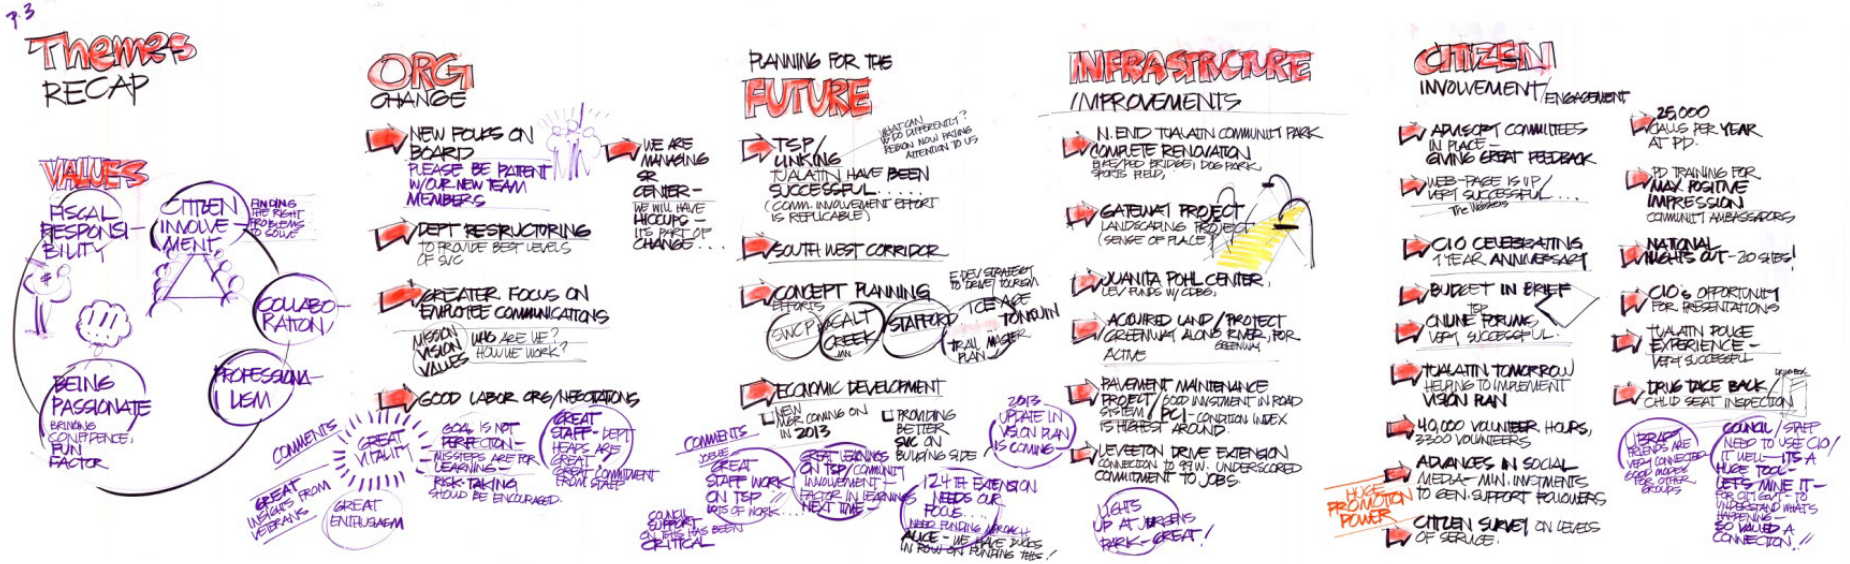 P.3
Themes
RECAP
VALUES
FISCAL
RESPONSI-
BILITY
CITIZEN
INVOLVE-
MENT
FINDING
THE RIGHT
PROBLEMS
TO SOLVE
COLLABO-
RATION
PROFESSIONA-
LISM
BEING
PASSIONATE
BRINGING
CONFIDENCE,
FUN
FACTOR
ORG
CHANGE
NEW FOLKS ON
BOARD
PLEASE BE PATIENT
W/OUR NEW TEAM
MEMBERS
DEPT RESTRUCTORING
TO PROVIDE BEST LEVELS
OF SVC
GREATER FOCUS ON
EMPLOYEE COMMUNICATIONS
MISSION
VISION
VALUES
WHO ARE WE?
HOW WE WORK?
GOOD LABOR ORG/NEGOTIATIONS
WE ARE
MANAGING
SR
CENTER-
WE WILL HAVE
HICCUPS -
ITS PART OF
CHANGE....
COMMENTS
GREAT
VITALITY
GREAT
INSIGHTS FROM
VETERANS
GREAT
ENTHUSIASM
GOAL IS NOT
PERFECTION-
MISSTEPS ARE FOR
LEARNING-
RISK-TAKING
SHOULD BE ENCOURAGED.
GREAT
STAFF- DEPT
HEADS ARE
GREAT
GREAT COMMITMENT
FROM STAFF
PLANNING FOR THE
FUTURE
TSP/
LINKING
TUALATIN HAVE BEEN
SUCCESSFUL.....
(COMM. INVOLVEMENT EFFORT
IS REPLICABLE)
WHAT CAN
WE DO DIFFERENTLY?
REGION NOW PAYING
ATTENTION TO US
SOUTH WEST CORRIDOR
CONCEPT PLANNING
EFFORTS
SWCP
BASALT
CREEK
STAFFORD
E. DEV STRATEGY
TO DRIVE TOURISM
ICE AGE
TONQUIN
TRAIL MASTER
PLAN
ECONOMIC DEVELOPMENT
NEW
MGR COMING ON
IN 2013
PROVIDING
BETTER
SVC ON
BUILDING SIDE
2013
UPDATE IN
VISION PLAN
IS COMING-
COMMENTS
GREAT
STAFF WORK
ON TSP !!
LOTS OF WORK....
COUNCIL
SUPPORT
ON THIS HAS BEEN
CRITICAL
GREAT LEARNINGS
ON TSP/COMMUNITY
INVOLVEMENT-
FACTOR IN LEARNINGS
NEXT TIME-
124TH EXTENSION
NEEDS OUR
FOCUS....
NEED FUNDING APPROACH
ALICE - WE HAVE DUCKS
IN ROW ON FUNDING THIS!
INFRASTRUCTURE
IMPROVEMENTS
N. END TUALATIN COMMUNITY PARK
COMPLETE RENOVATION
BIKE/PED BRIDGE, DOG PARK,
SPORTS FIELD,
GATEWAY PROJECT
LANDSCAPING PROJECT
(SENSE OF PLACE)
JUANITA POHL CENTER,
LEV FUNDS W/ CDBG,
ACQUIRED LAND/PROJECT
GREENWAY ALONG RIVER, FOR
GREENWAY
ACTIVE
PAVEMENT MAINTENANCE
PROJECT/GOOD INVESTMENT IN ROAD
SYSTEM/PCI-CONDITION INDEX
IS HIGHEST AROUND.
LEVETON DRIVE EXTENSION
CONNECTION TO 99W. UNDERSCORED
COMMITMENT TO JOBS.
LIGHTS
UP AT JURGENS
PARK-GREAT!
CITIZEN
INVOLVEMENT/ENGAGEMENT
ADVISORY COMMITTEES
IN PLACE-
GIVING GREAT FEEDBACK
WEB-PAGE IS UP/
VERY SUCCESSFUL....
CIO CELEBRATING
1 YEAR ANNIVERSARY
BUDGET IN BRIEF
TSP
ONLINE FORUMS
VERY SUCCESSFUL.
TUALATIN TOMORROW
HELPING TO IMPLEMENT
VISION PLAN
40,000 VOLUNTEER HOURS,
3300 VOLUNTEERS
ADVANCES IN SOCIAL
MEDIA-MIN. INVSTMENTS
TO GEN. SUPPORT FOLLOWERS
HUGE
PROMOTION
POWER
CITIZEN SURVEY ON LEVELS
OF SERVICE.
25,000
CALLS PER YEAR
AT PD.
PD TRAINING FOR
MAX POSITIVE
IMPRESSION
COMMUNITY AMBASSADORS
NATIONAL
NIGHTS OUT-20 SITES!
CIO'S OPPORTUNITY
FOR PRESENTATIONS
TUALATIN POLICE
EXPERIENCE-
VERY SUCCESSFUL
DRUG TAKE BACK/
CHILD SEAT INSPECTION
DRUG BOX
LIBRARY
FRIENDS ARE
VERY CONNECTED
GOOD MODEL
FOR OTHER
GROUPS
COUNCIL/STAFF
NEED TO USE CIO/
IT WELL-ITS A
HUGE TOOL-
LET'S MINE IT-
FOR CITY GOVT-TO
UNDERSTAND WHATS
HAPPENING-
SO VALUED A
CONNECTION!!